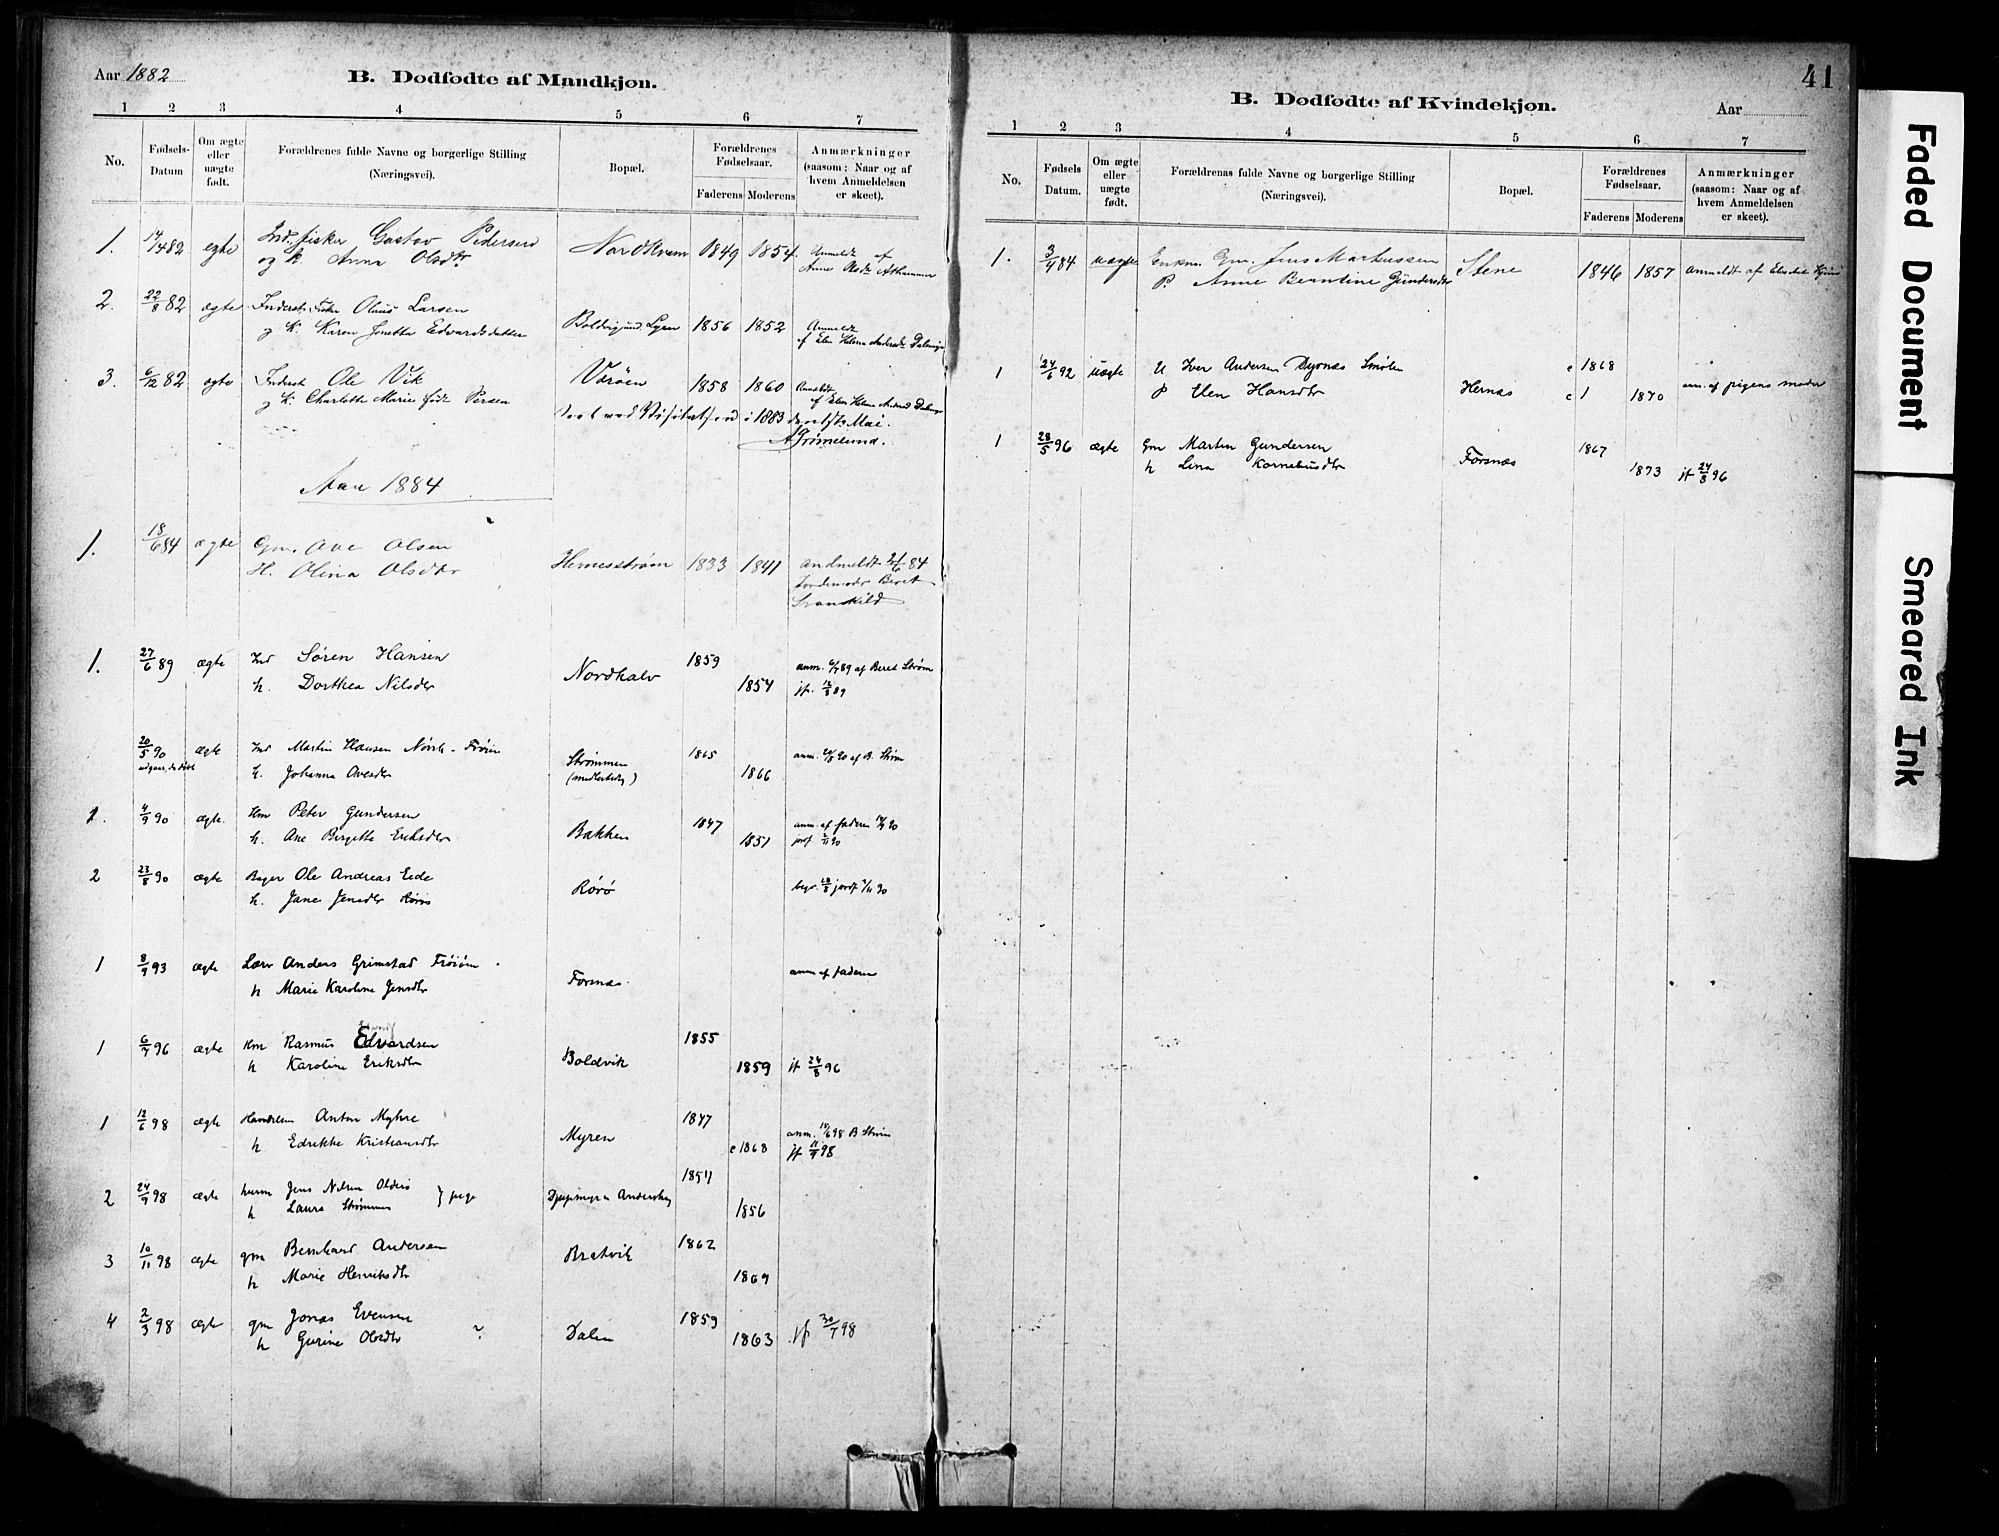 Aar 1882
B. Dødfødte af Mandkjøn.
1 2 3 4 5 6 7
No.
Fødsels-
Datum
Om ægte
eller
uægte
født.
Forældrenes fulde Navne og borgerlige Stilling
(Næringsvei).
Bopæl.
Forældrenes
Fødselsaar.
Faderens Moderens
Anmærkninger
(saasom: Naar og af
hvem Anmeldelsen
er skeet).
1. 14/4 82 egte Ind. fisker Gustav Pedersen Nordkvem 1849 1854. Anmeldt af
og k Anna Olsdtr Anne Olsdt
2. 22/8 82 ægte Inderst, Fisker Olaus Larsen
og k. Karen Jonetta Edvardsdatter 1856 1852 Anmeldt
af Elen Helena Andersdt
3. 6/12 82 ægte Inderst Ole Vik Varöen 1858 1860 Anmeldt
og k. Charlotte Marie Persen af Elen Helena
Seet ved Visitatsen i 1883 den Mai.
Aar 1884
1. 18/6 84 ægte Gm. Ave Olsen
H. Olina Olsdtr Hernesstrøm 1833 1841 andmeldt 84
Jordemoder Beret
Svanskild
1. 27/6 89 ægte Ind Søren Hansen Nordhalv 1859 anm. 89 af Beret Strøm
h. Dorthea Nilsdtr 1854 jf. 89
20/5 90 ægte Ind Martin Hansen Nørde-Frøien Strømmen 1865 anm. 90 af B. Strøm
h. Johanna Avesdtr 1866
1. 4/9 90 ægte. Hm Peter Gundersen Bakken 1847 anm. af faderen 90
h. Ane Birgitte Eriksdtr 1851 jordf 90
2 23/8 90 ægte Bager Ole Andreas Eide Rørø
h. Jane Jensdtr begr. jordf 90
1 8/9 93 ægte Lærer Anders Grimstad Frøien Forsnæs. anm af faderen
h Marie Karoline Jensdtr
1 6/7 96 ægte Hm Rasmus Edvardsen Boldvik 1855
h Karoline Eriksdtr 1859 jf 24/8 96
1 12/6 98 ægte Anton Myhre Myren 1847 anm. 98 B Strøm
h Edrikke Kristiansdtr c 1868 jf 98
2 24/9 98 ægte husm Jens Nilsen } pige 1854
h Laura Strømmen 1856
3 10/11 98 ægte gm Bernhard Andersen Bratvik 1862
h Marie Henriksdtr 1869
4 2/3 98 ægte gm Jonas Evensen 1859 jf 98
h Gurine Olsdtr ? Dalen 1863
41
B. Dødfødte af Kvindekjøn.
Aar
1 2 3 4 5 6 7
No.
Fødsels
Datum.
Om ægte
eller
uægte
født.
Forældrenas fulde Navne og borgerlige Stilling
(Næringsvei).
Bopæl.
Forældrenes
Fødselsaar.
Faderens Moderens
Anmærkninger
(saasom: Naar og af
hvem Anmeldelsen
er skeet).
1. 3/4 84 uægte Enkm. Gm. Jens Martinussen Stene 1846 1857 anmeldt af
P. Anne Berntine Gundersdtr
1 24/6 92 uægte U Iver Andersen Dyrnæs Smølen c 1868
P Elen Hansdtr Hernæs c 1 1870 anm. af pigens moder
1 28/5 96 ægte Gm Martin Gundersen Forsnæs 1867
h Lina Korneliusdtr 1873 jf 24/8 96
Faded Document
Smeared Ink